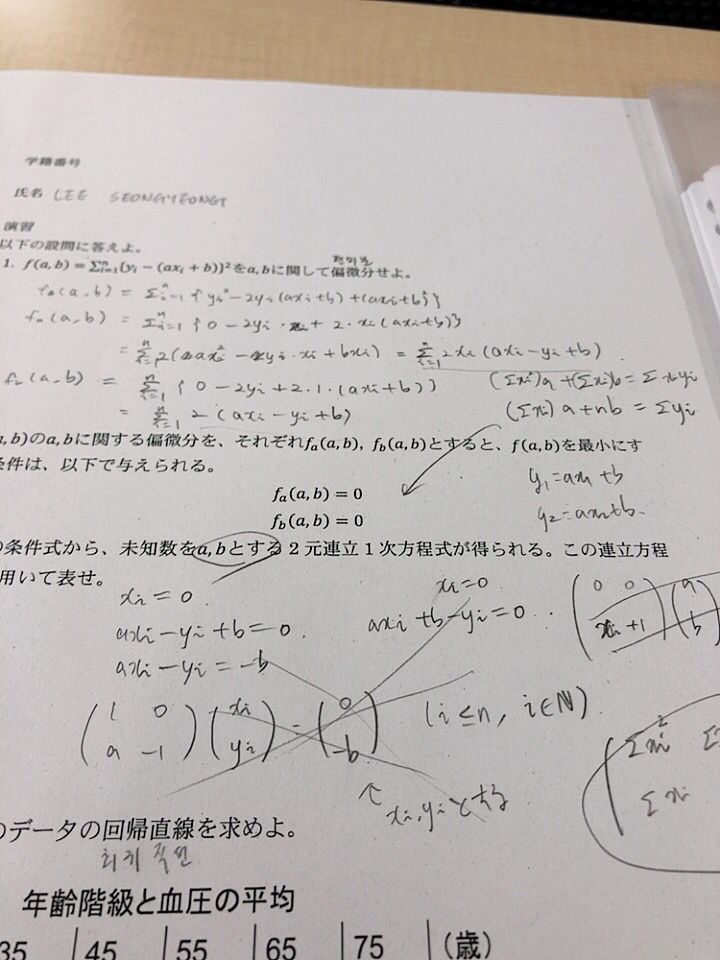 学籍番号
氏名 LEE SEONGYEONGT
演習
以下の設問に答えよ。
편미분
1. f(a, b) = Σⁿᵢ₌₁{yᵢ − (axᵢ + b)}²をa, bに関して偏微分せよ。
(a, b) = Σⁿᵢ₌₁ {yᵢ² − 2yᵢ(axᵢ+b) + (axᵢ+b)²}
fₐ(a, b) = Σⁿᵢ₌₁ {0 − 2yᵢ · xᵢ + 2 · xᵢ(axᵢ+b)}
= Σⁿᵢ₌₁ 2(axᵢ² − yᵢ · xᵢ + bxᵢ) = Σⁿᵢ₌₁ 2xᵢ(axᵢ − yᵢ + b)
(a, b) = Σⁿᵢ₌₁ {0 − 2yᵢ + 2 · 1 · (axᵢ+b)}
(Σxᵢ²)a + (Σxᵢ)b = Σxᵢyᵢ
= Σⁿᵢ₌₁ 2(axᵢ − yᵢ + b)
(Σxᵢ)a + nb = Σyᵢ
a, b)のa, bに関する偏微分を、それぞれfₐ(a, b), f_b(a, b)とすると、f(a, b)を最小にす
条件は、以下で与えられる。
fₐ(a, b) = 0
y₁ = ax₁ + b
f_b(a, b) = 0
y₂ = ax₂ + b.
条件式から、未知数をa, bとする 2 元連立 1 次方程式が得られる。この連立方程
用いて表せ。
xᵢ = 0
xᵢ = 0
axᵢ − yᵢ + b = 0
axᵢ + b − yᵢ = 0
(0 0
xᵢ +1) (a
b)
axᵢ − yᵢ = −b
(1 0
a −1) (xᵢ
yᵢ) = (0
−b)
(i ≤ n, i∈ℕ)
↑ xᵢ, yᵢとする
(Σxᵢ² Σ
Σxᵢ
のデータの回帰直線を求めよ。
회귀 직선
年齢階級と血圧の平均
35 45 55 65 75 (歳)